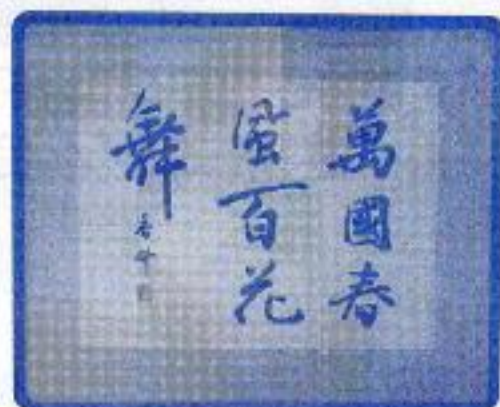 萬國春
風百花
舞